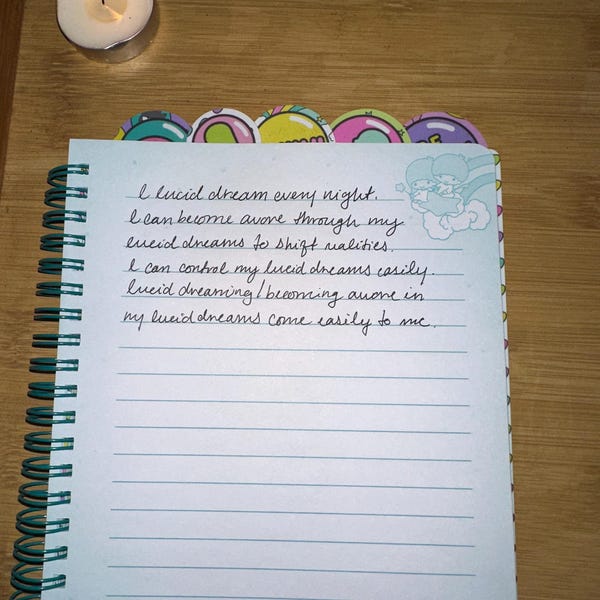 I lucid dream every night.
I can become aware through my
lucid dreams to shift realities.
I can control my lucid dreams easily.
lucid dreaming/becoming aware in
my lucid dreams come easily to me.